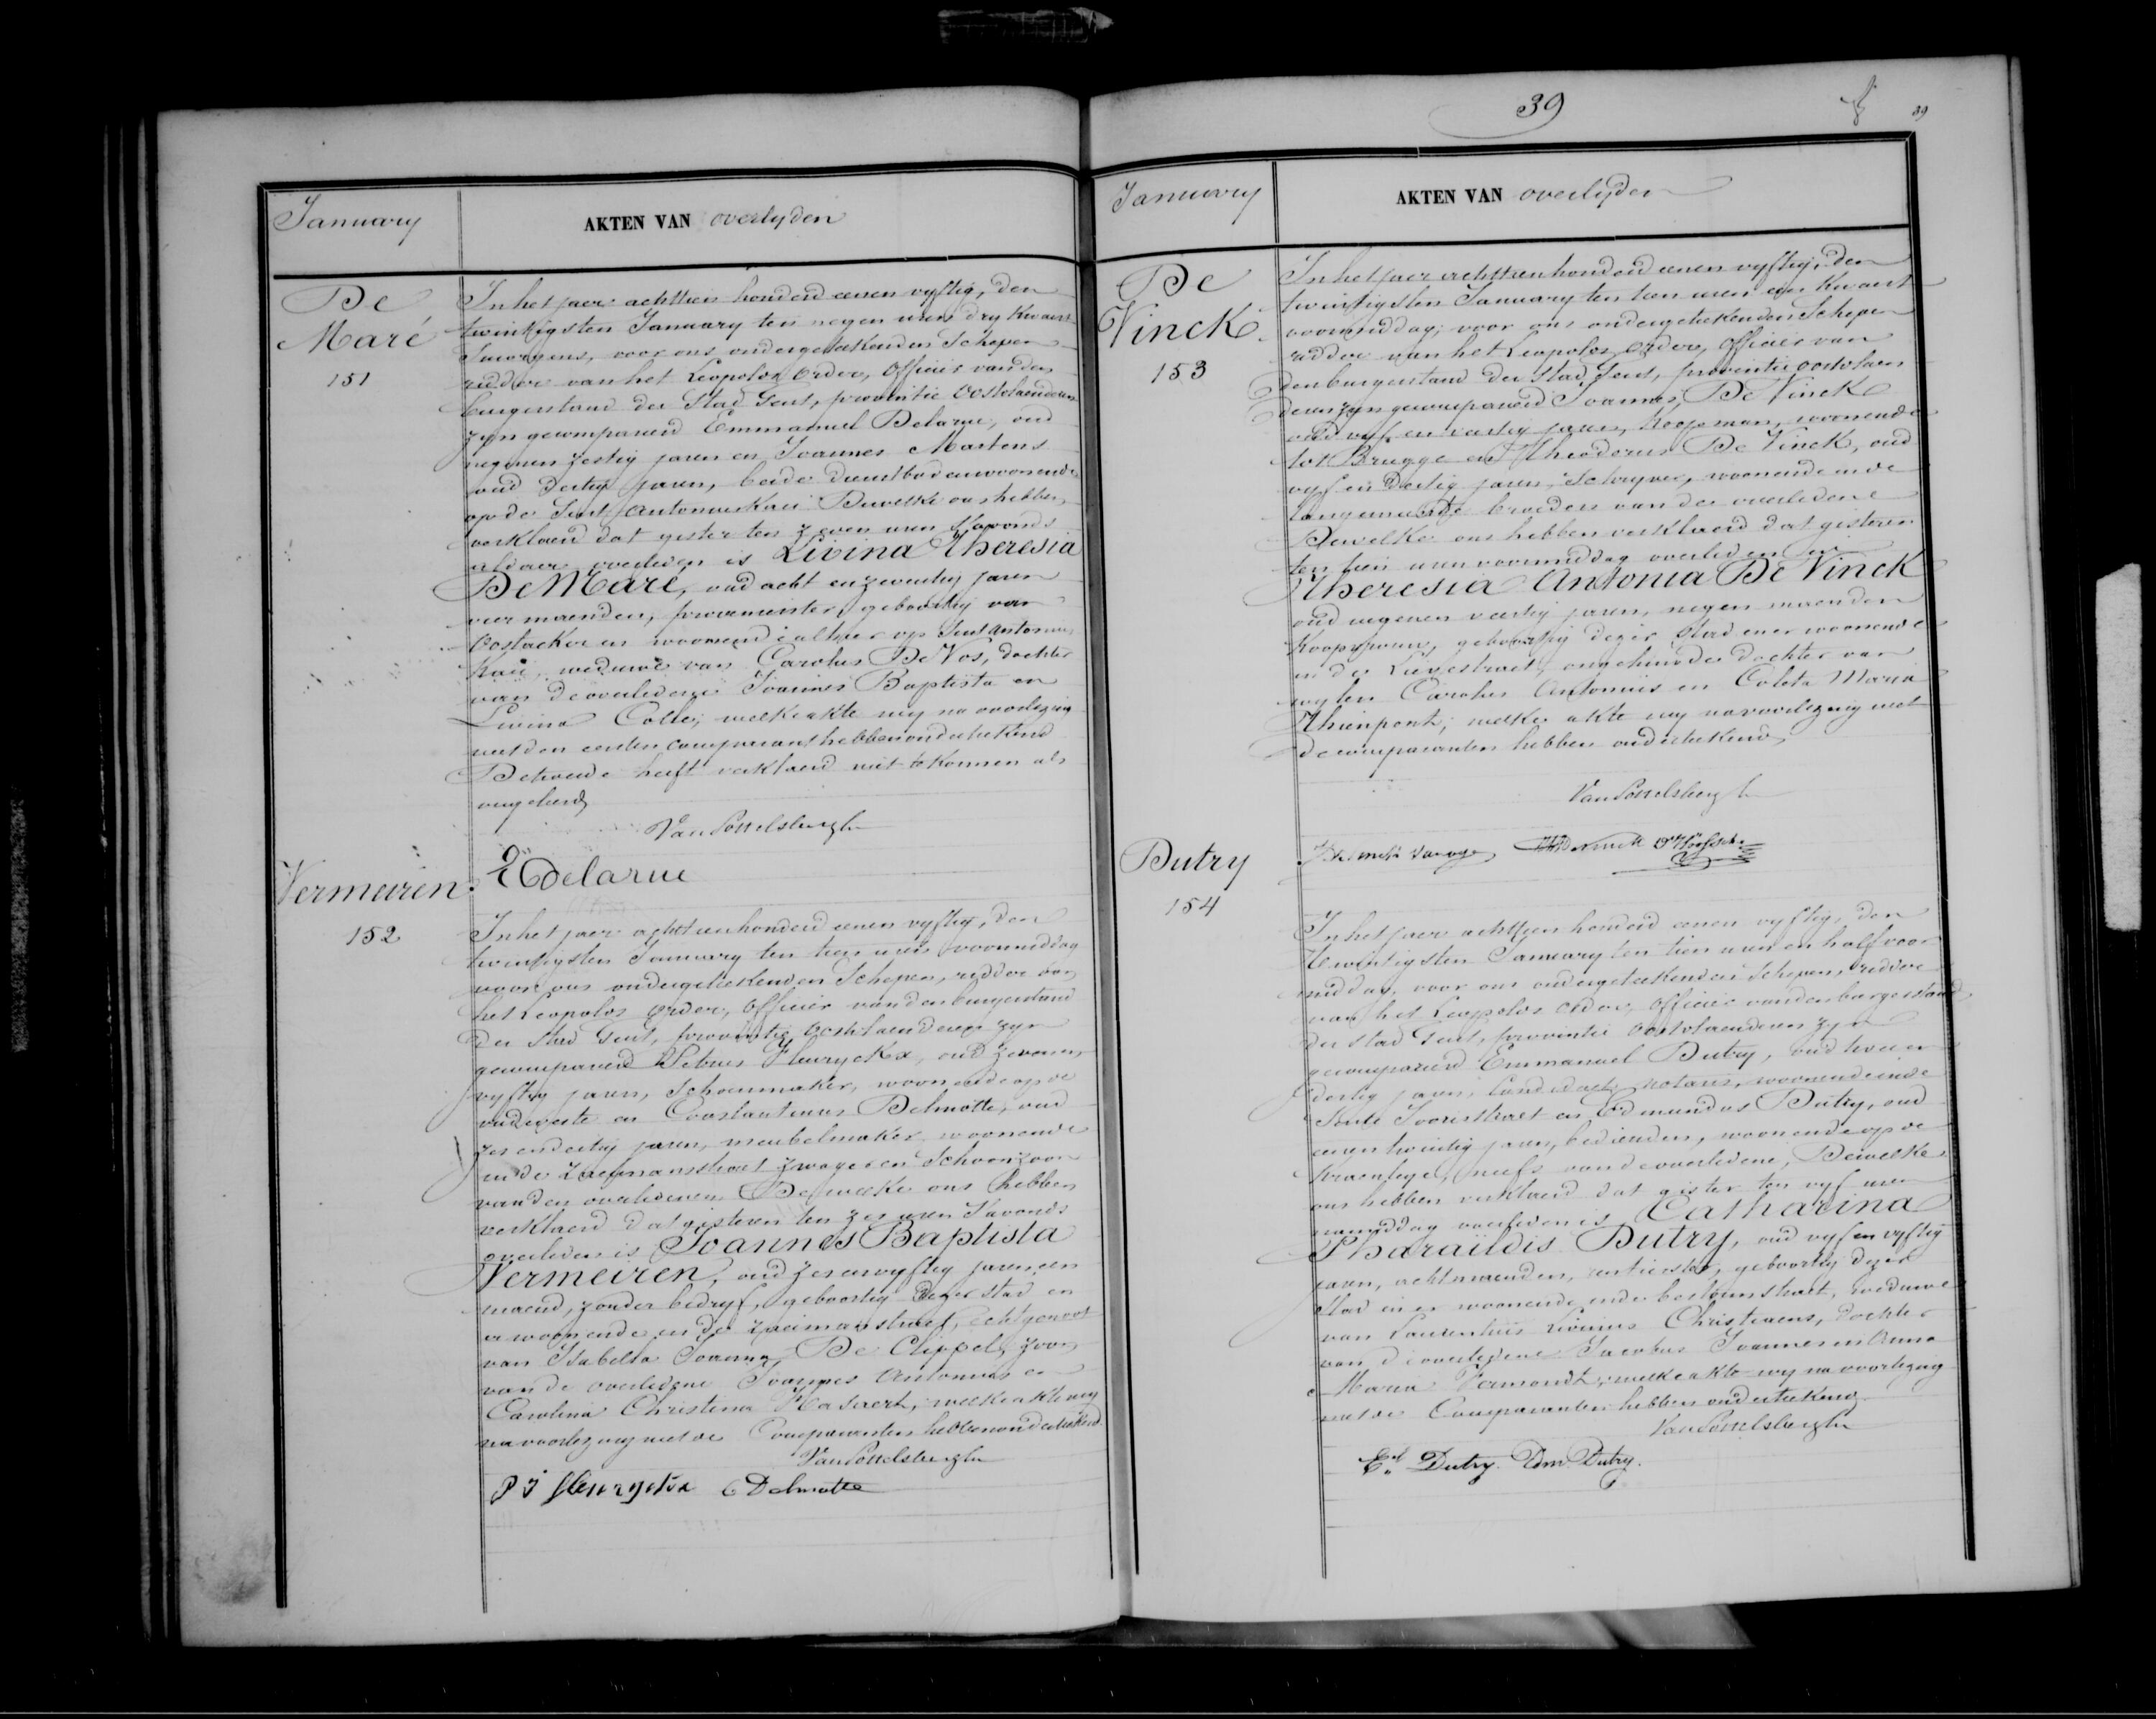 January
AKTEN VAN overlyden
De
Maré
151
In het jaer achttien honderd eenen vyftig, den
twintigsten January ten negen uren dry kwaert
Smorgens, voor ons ondergeteekenden Schepen
ridder van het Leopolds order, Officier van den
burgerstand der Stad Gent, provintie Oostvlaenderen
zyn gecompareerd Emmanuel Delarue, oud
negenen zestig jaren en Joannes Martens
oud dertig jaren, beide dienstboden woonende
op de Sint Antoniuskaei Dewelke ons hebben
verklaerd dat gister ten zeven uren Savonds
aldaer overleden is Livina Theresia
De Maré, oud acht en zeventig jaren
vier maenden, geboortig van
Oostacker en woonende alhier op Sint Antonius
Kaei, weduwe van Carolus De Vos, dochter
van de overledene Joannes Baptista en
Livina Colle; welke akte wy na voorlezing
met den eersten comparant hebben onderteekend
De tweede heeft verklaerd niet te konnen als
ongeleerd
Van Pottelsberghe
E Delarue
Vermeiren
152
In het jaer achttien honderd eenen vyftig, den
twintigsten January ten tien uren voormiddag
voor ons ondergeteekenden Schepen, ridder van
het Leopolds order, Officier van den burgerstand
der Stad Gent, provintie Oostvlaenderen zyn
gecompareerd Petrus Heuryckx, oud zevenen
vyftig jaren, Schoenmaker, woonende op de
oude veste en Constantinus Delmotte, oud
zes en dertig jaren, meubelmaker woonende
in de Zaeimanstraet zwager en Schoonzoon
van den overledenen Dewelke ons hebben
verklaerd dat gisteren ten zes uren Savonds
overleden is Joannes Baptista
Vermeiren, oud zes en vyftig jaren een
maend, zonder bedryf, geboortig dezer stad en
er woonende in de zaeimanstraet, echtgenoot
van Isabella Joanna De Clippel, zoon
van de overledene Joannes Antonius en
Carolina Christina welke akte wy
na voorlezing met de Comparanten hebben onderteekend.
Van Pottelsberghe
P J Heuryckx C Delmotte
39
39
January
AKTEN VAN overlyden
De
Vinck
153
In het jaer achttien honderd eenen vyftig, den
twintigsten January ten tien uren een kwaert
voormiddag, voor ons ondergeteekenden Schepen
ridder van het Leopolds order, Officier van
den burgerstand der Stad Gent, provintie Oostvlaen
deren zyn gecompareerd Joannes De Vinck
oud vyf en veertig jaren, Koopman, woonende
tot Brugge en Theodorus De Vinck, oud
vyf en dertig jaren, Schryver, woonende in de
Langemunte broeders van de overledene
Dewelke ons hebben verklaerd dat gisteren
ten tien uren voormiddag overleden is
Theresia Antonia De Vinck
oud negenen veertig jaren, negen maenden
Koopvrouw, geboortig dezer Stad en er woonende
in de Lievestraet, ongehuwde dochter van
wylen Carolus Antonius en Coleta Maria
Thienpont; welke akte wy na voorlezing met
de comparanten hebben onderteekend
Van Pottelsberghe
Dutry
154
In het jaer achttien honderd eenen vyftig, den
twintigsten January ten tien uren en half voor
middag, voor ons ondergeteekenden Schepen, ridder
van het Leopolds order, Officier van den burgerstand
der stad Gent, provintie Oostvlaenderen zyn
gecompareerd Emmanuel Dutry, oud twee en
dertig jaren, Candidaet notaris, woonende in de
Sinte Jorisstraet en Edmundus Dutry, oud
eenen twintig jaren, bediende, woonende op de
neefs van de overledene, Dewelke
ons hebben verklaerd dat gister ten vyf uren
namiddag overleden is Catharina
Pharaïldis Dutry, oud vyf en vyftig
jaren, acht maenden, rentierster, geboortig dezer
Stad en er woonende in de bestormstraet, weduwe
van Laurentius Livinus Christiaens, dochter
van de overledene Jacobus Joannes en Anna
Maria Vermondt; welke akte wy na voorlezing
met de Comparanten hebben onderteekend
Van Pottelsberghe
Ed Dutry. Em. Dutry.